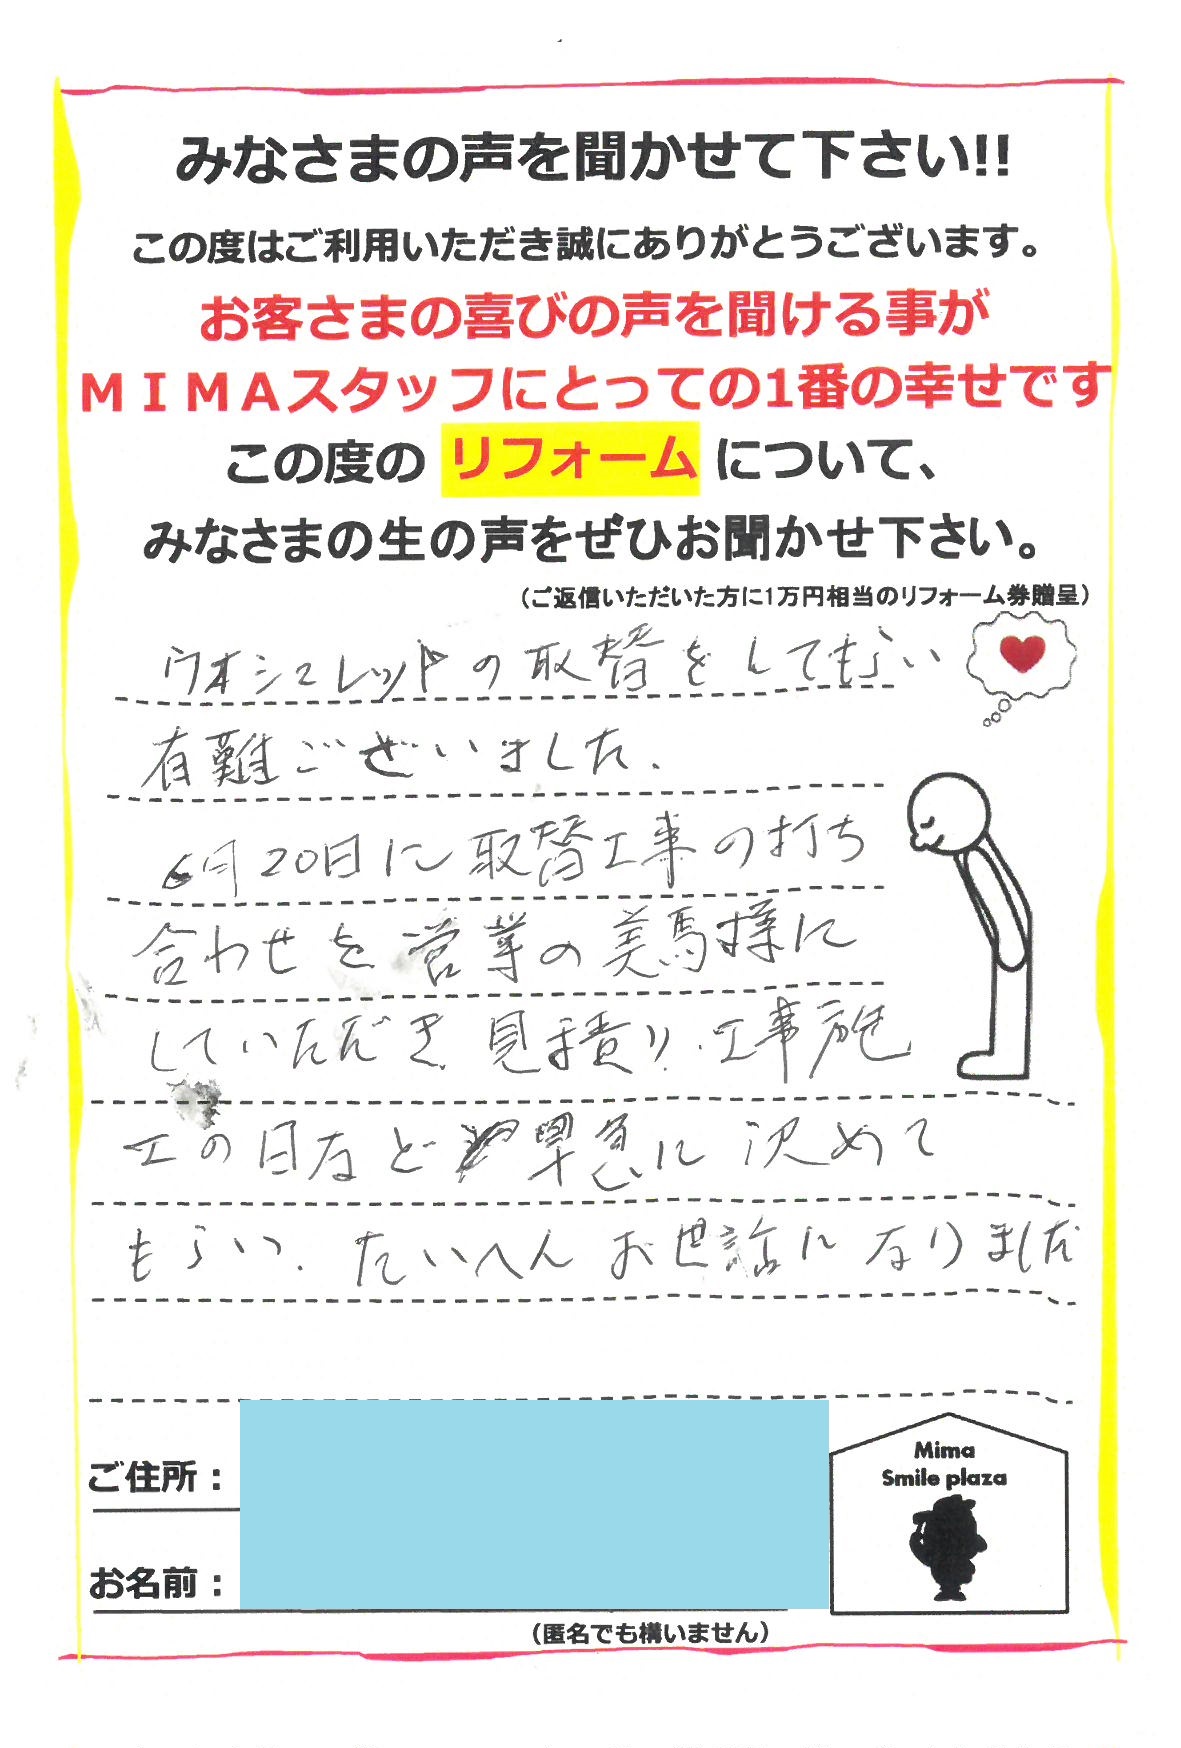 みなさまの声を聞かせて下さい!!
この度はご利用いただき誠にありがとうございます。
お客さまの喜びの声を聞ける事が
ＭＩＭＡスタッフにとっての1番の幸せです
この度の リフォーム について、
みなさまの生の声をぜひお聞かせ下さい。
（ご返信いただいた方に1万円相当のリフォーム券贈呈）
ウオシュレットの取替をしてもらい
有難ございました.
6月20日に取替工事の打ち
合わせを営業の美馬様に
していただき、見積り、工事施
工の日など早急に決めて
もらい、たいへんお世話になりました
ご住所：
お名前：
（匿名でも構いません）
Mima
Smile plaza